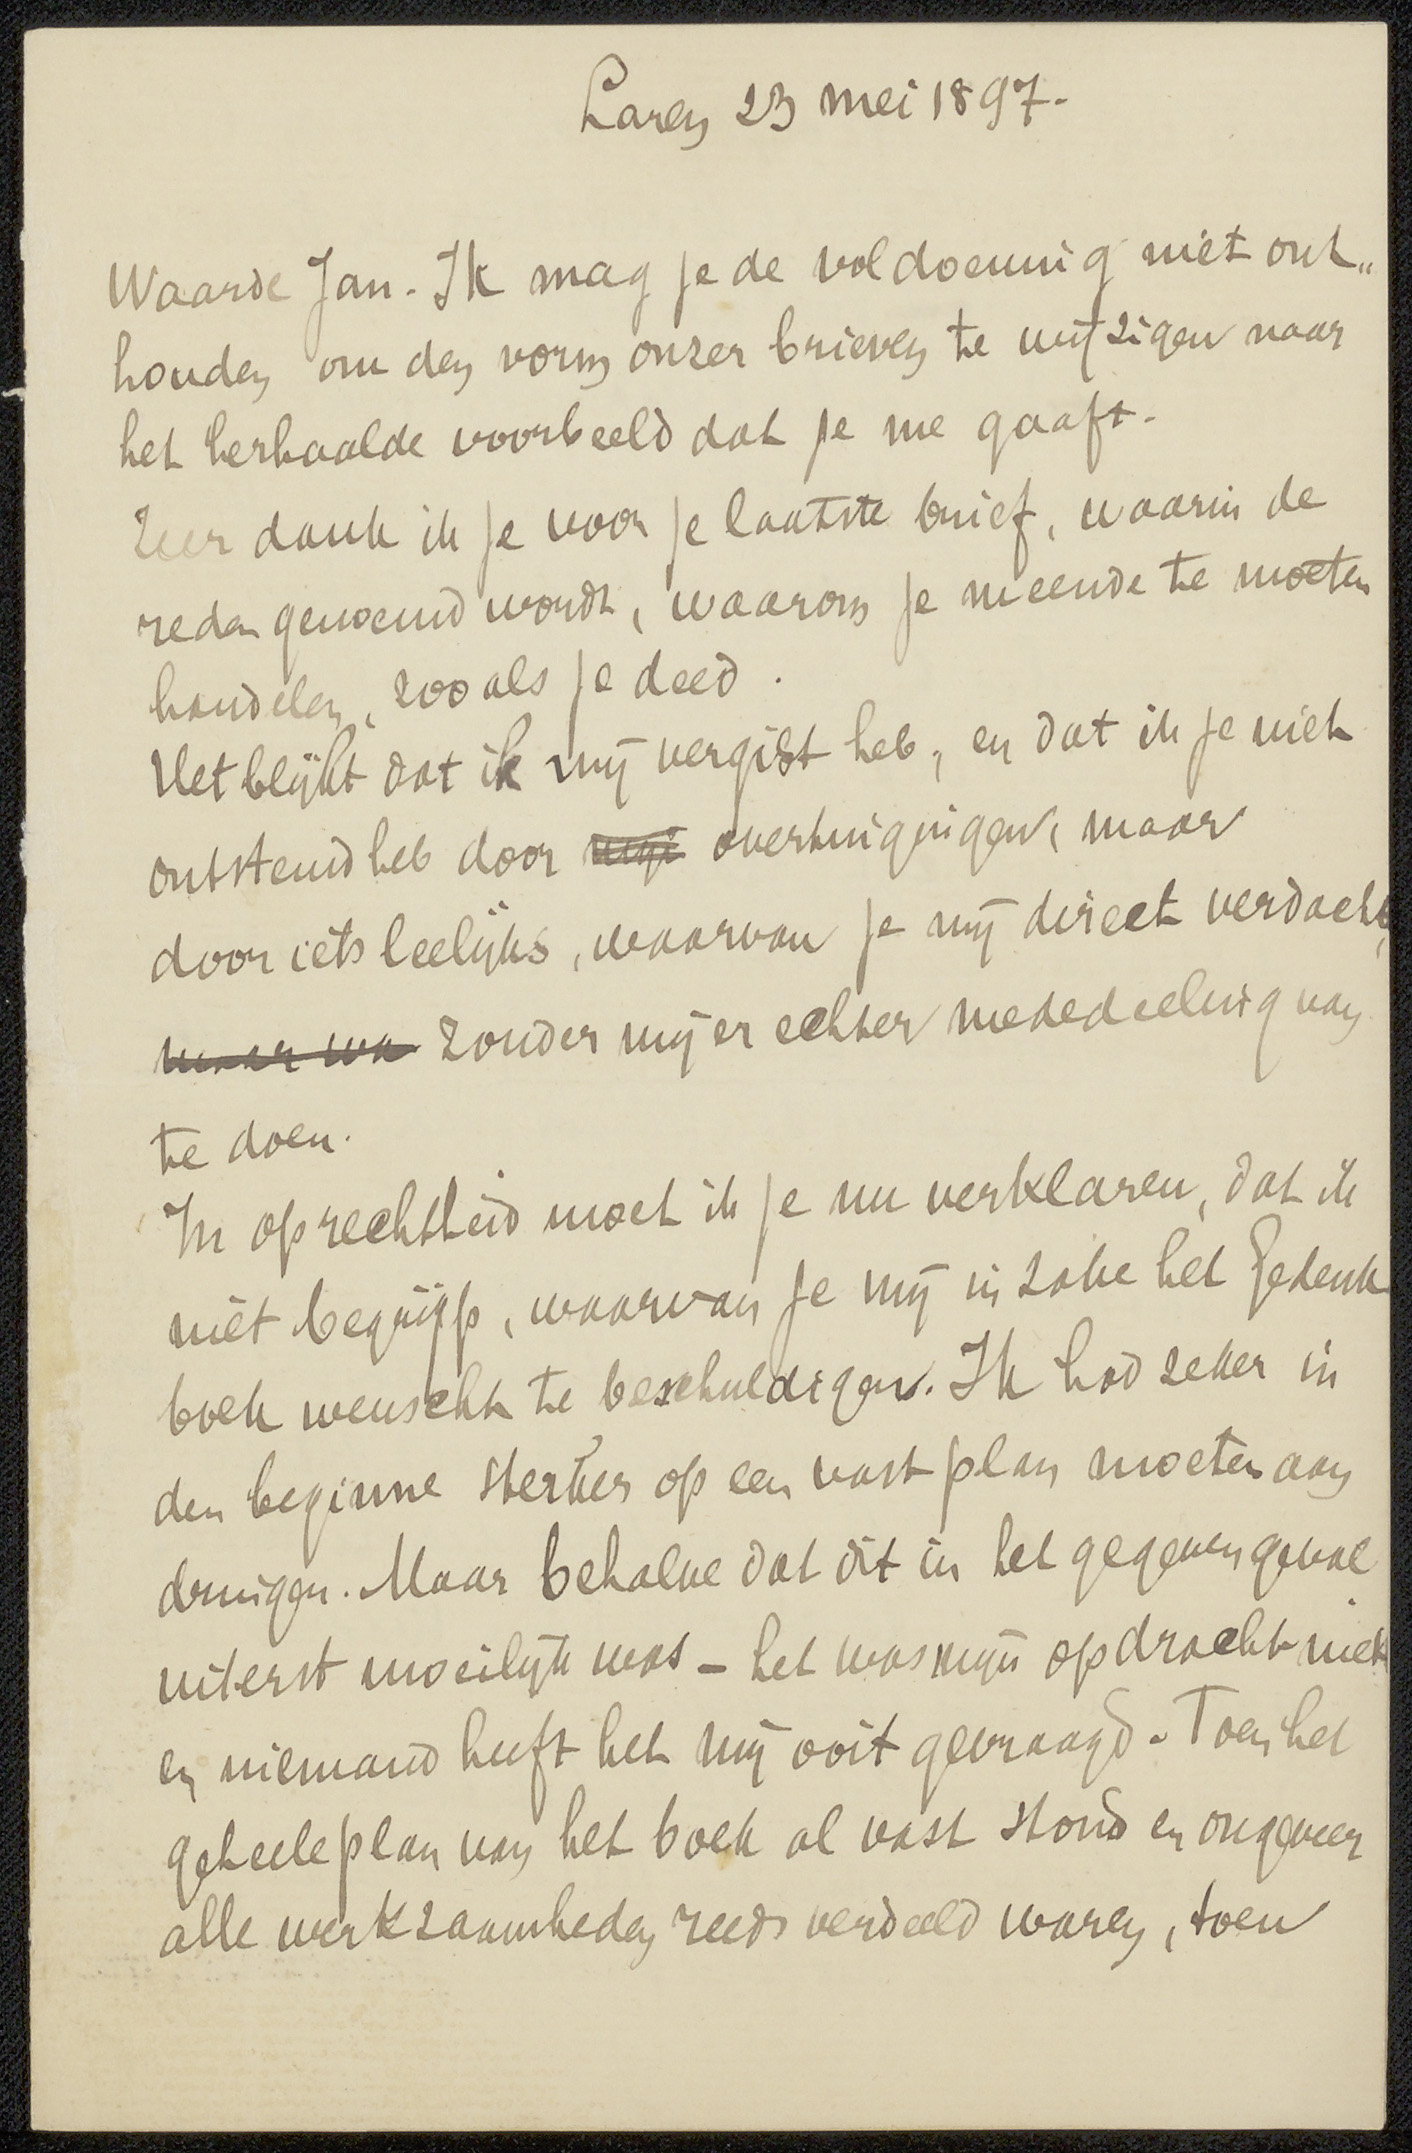 Laren 23 mei 1897.
Waarde Jan. Ik mag je de voldoening niet ont„
houden om den vorm onzer brieven te wijzigen naar
het herhaalde voorbeeld dat je me gaaft.
Zeer dank ik je voor je laatste brief, waarin de
reden genoemd wordt, waarom je meende te moeten
handelen, zooals je deed.
Het blijkt dat ik mij vergist heb, en dat ik je niet
ontstemd heb door overtuigingen, maar
door iets leelijks, waarvan je mij direct verdacht,
maar wa zonder mij er echter mededeeling van
te doen.
In oprechtheid moet ik je nu verklaren, dat ik
niet begrijp, waarvan je mij in zake het Gedenk
boek wenscht te beschuldigen. Ik had zeker in
den beginne sterker op een vast plan moeten aan
dringen. Maar behalve dat dit in het gegeven geval
uiterst moeilijk was - het was mijn opdracht niet
en niemand heeft het mij ooit gevraagd. Toen het
geheele plan van het boek al vast stond en ongeveer
alle werkzaamheden reeds verdeeld waren, toen